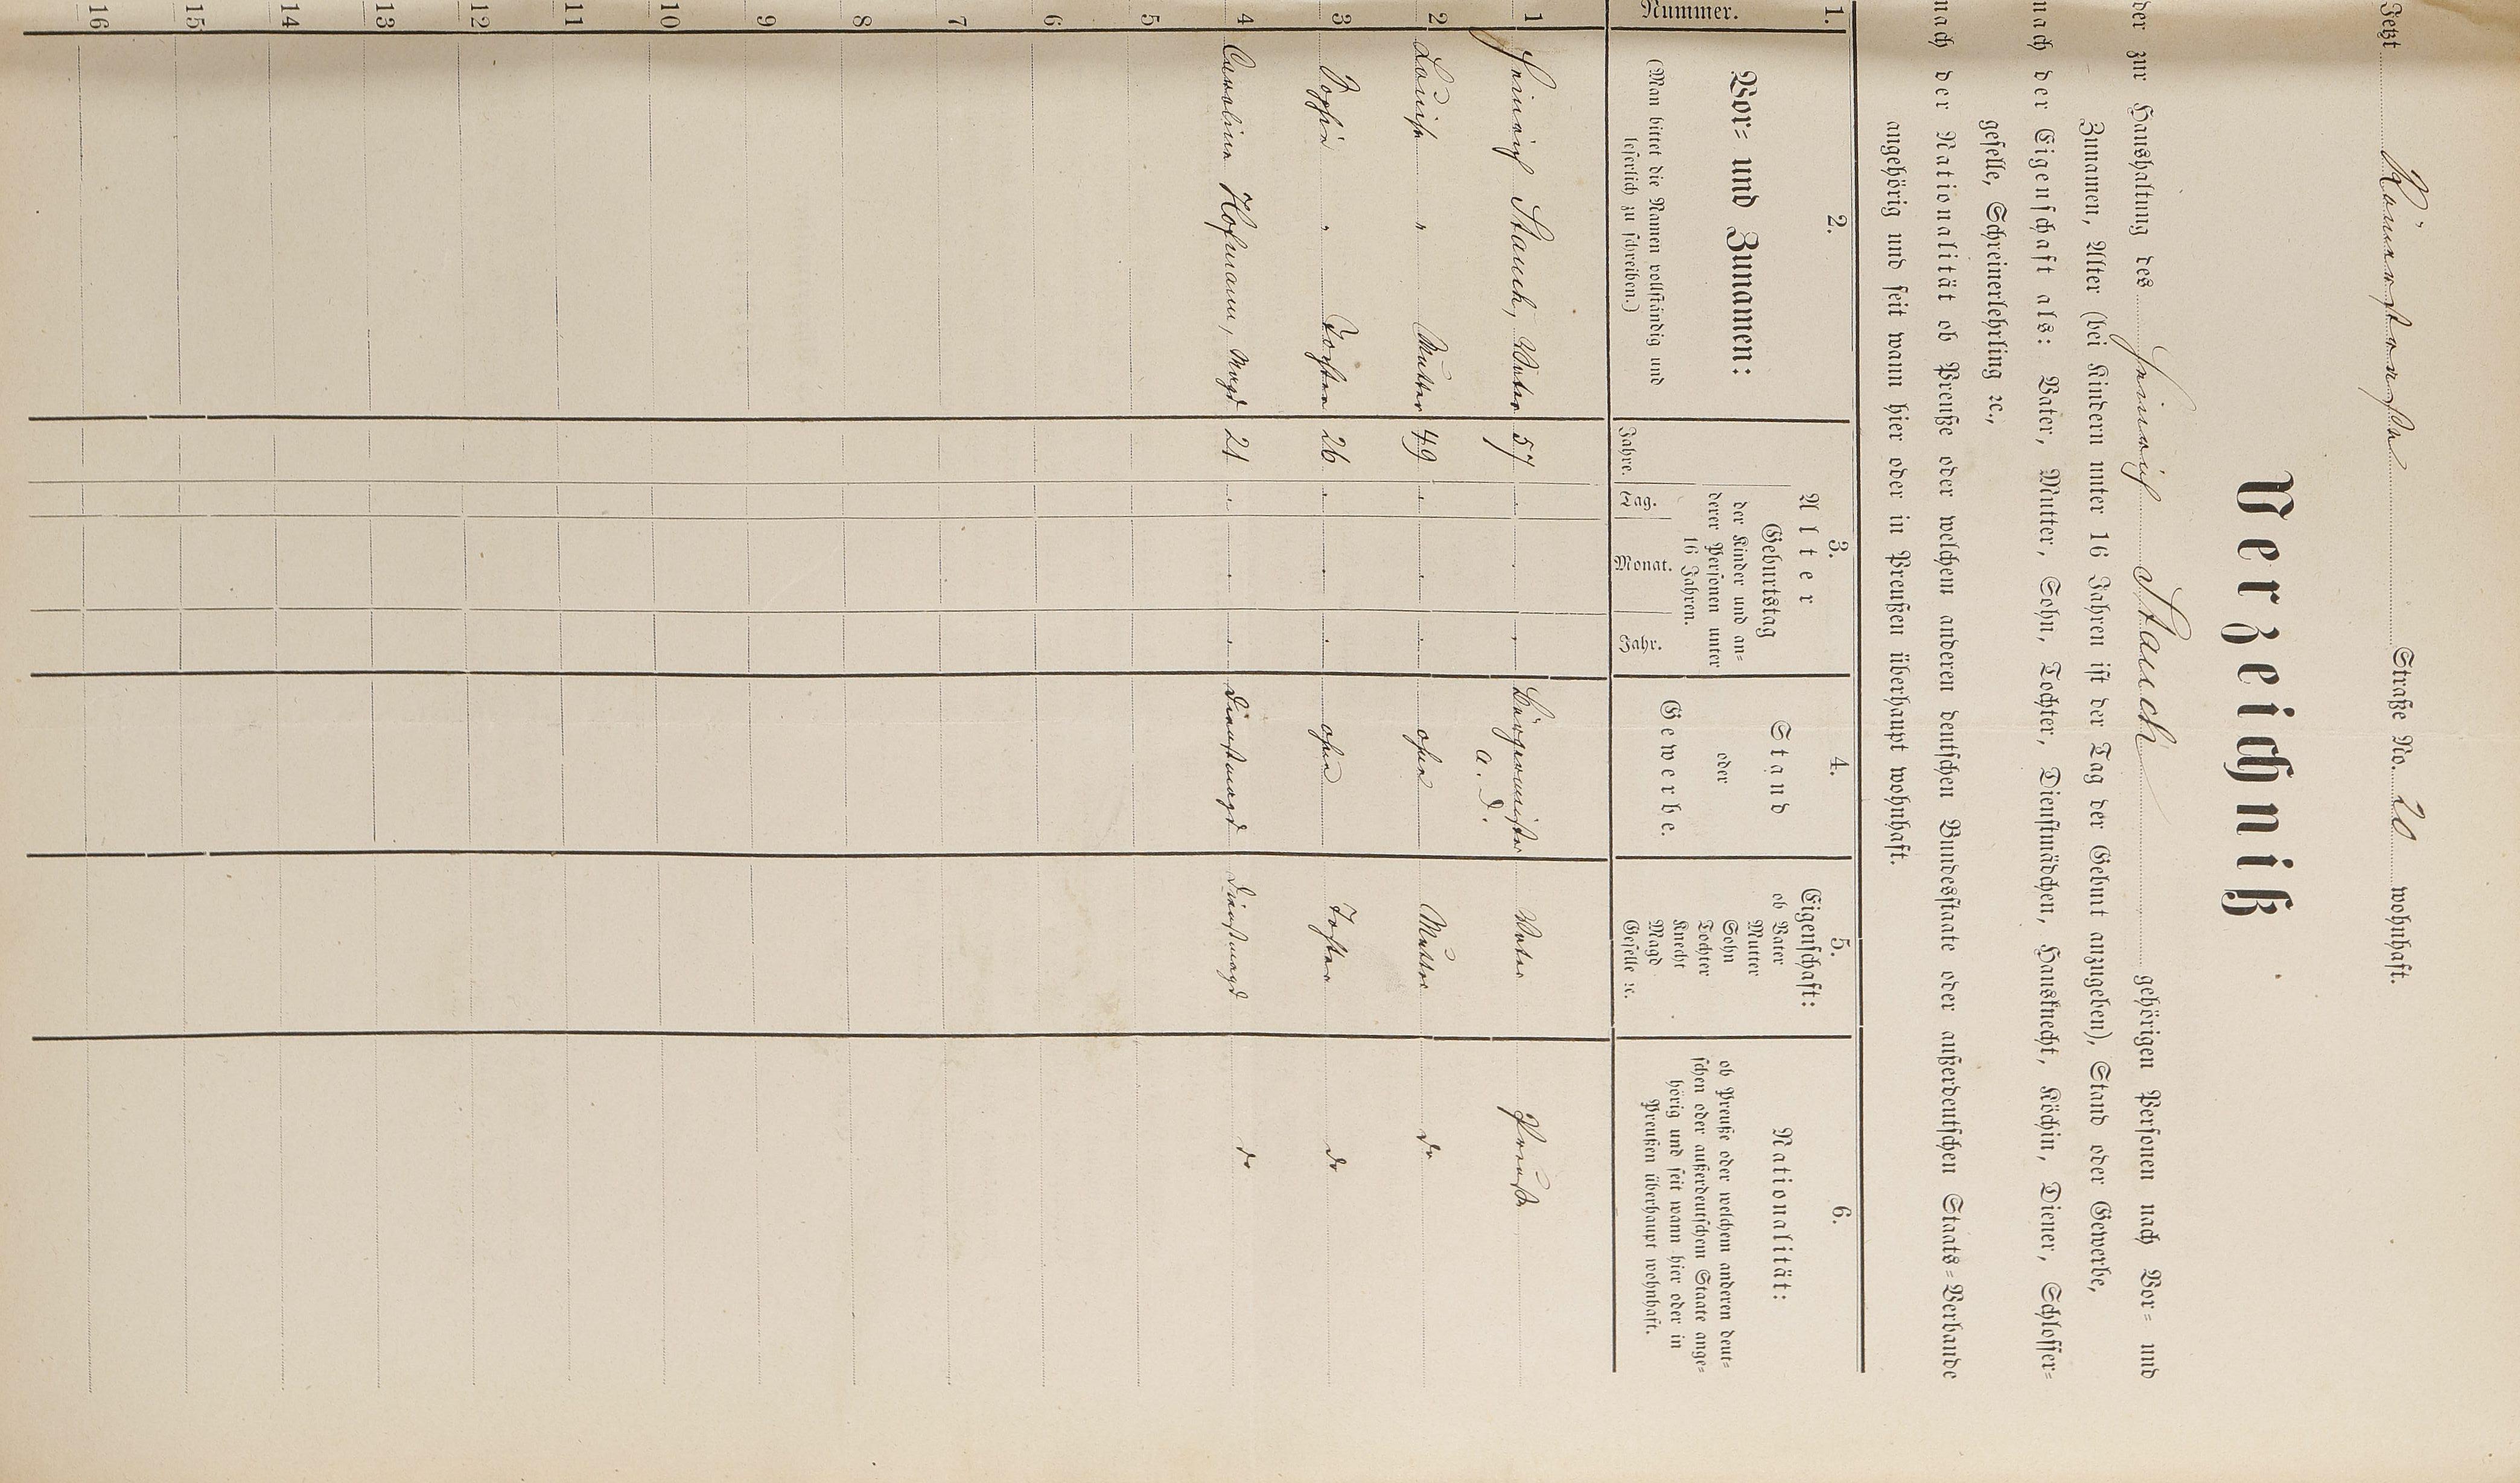 Jetzt Römerstraße Straße No. 20 wohnhaft.
Verzeichniß
der zur Haushaltung des Heinrich Stauch gehörigen Personen nach Vor- und
Zunamen, Alter (bei Kindern unter 16 Jahren ist der Tag der Geburt anzugeben), Stand oder Gewerbe,
nach der Eigenschaft als: Vater, Mutter, Sohn, Tochter, Dienstmädchen, Hausknecht, Köchin, Diener, Schlosser-
geselle, Schreinerlehrling ꝛc.,
nach der Nationalität ob Preuße oder welchem anderen deutschen Bundesstaate oder außerdeutschen Staats-Verbande
angehörig und seit wann hier oder in Preußen überhaupt wohnhaft.
1. 2. 3. 4. 5. 6.
Nummer.
Vor- und Zunamen:
(Man bittet die Namen vollständig und
leserlich zu schreiben.)
Alter
Geburtstag
der Kinder und an-
derer Personen unter
16 Jahren.
Jahre. Tag. Monat. Jahr.
Stand
oder
Gewerbe.
Eigenschaft:
ob Vater
Mutter
Sohn
Tochter
Knecht
Magd
Geselle ꝛc.
Nationalität:
ob Preuße oder welchem anderen deut-
schen oder außerdeutschem Staate ange-
hörig und seit wann hier oder in
Preußen überhaupt wohnhaft.
1 Heinrich Stauch, Vater 57 . . . Bürgermeister a. D. Vater Preuße
2 Louise " Mutter 49 . . . ohne Mutter do
3 Sophie " Tochter 26 . . . ohne Tochter do
4 Caroline Hofmann, Magd 21 . . . Dienstmagd Dienstmagd do
5
6
7
8
9
10
11
12
13
14
15
16